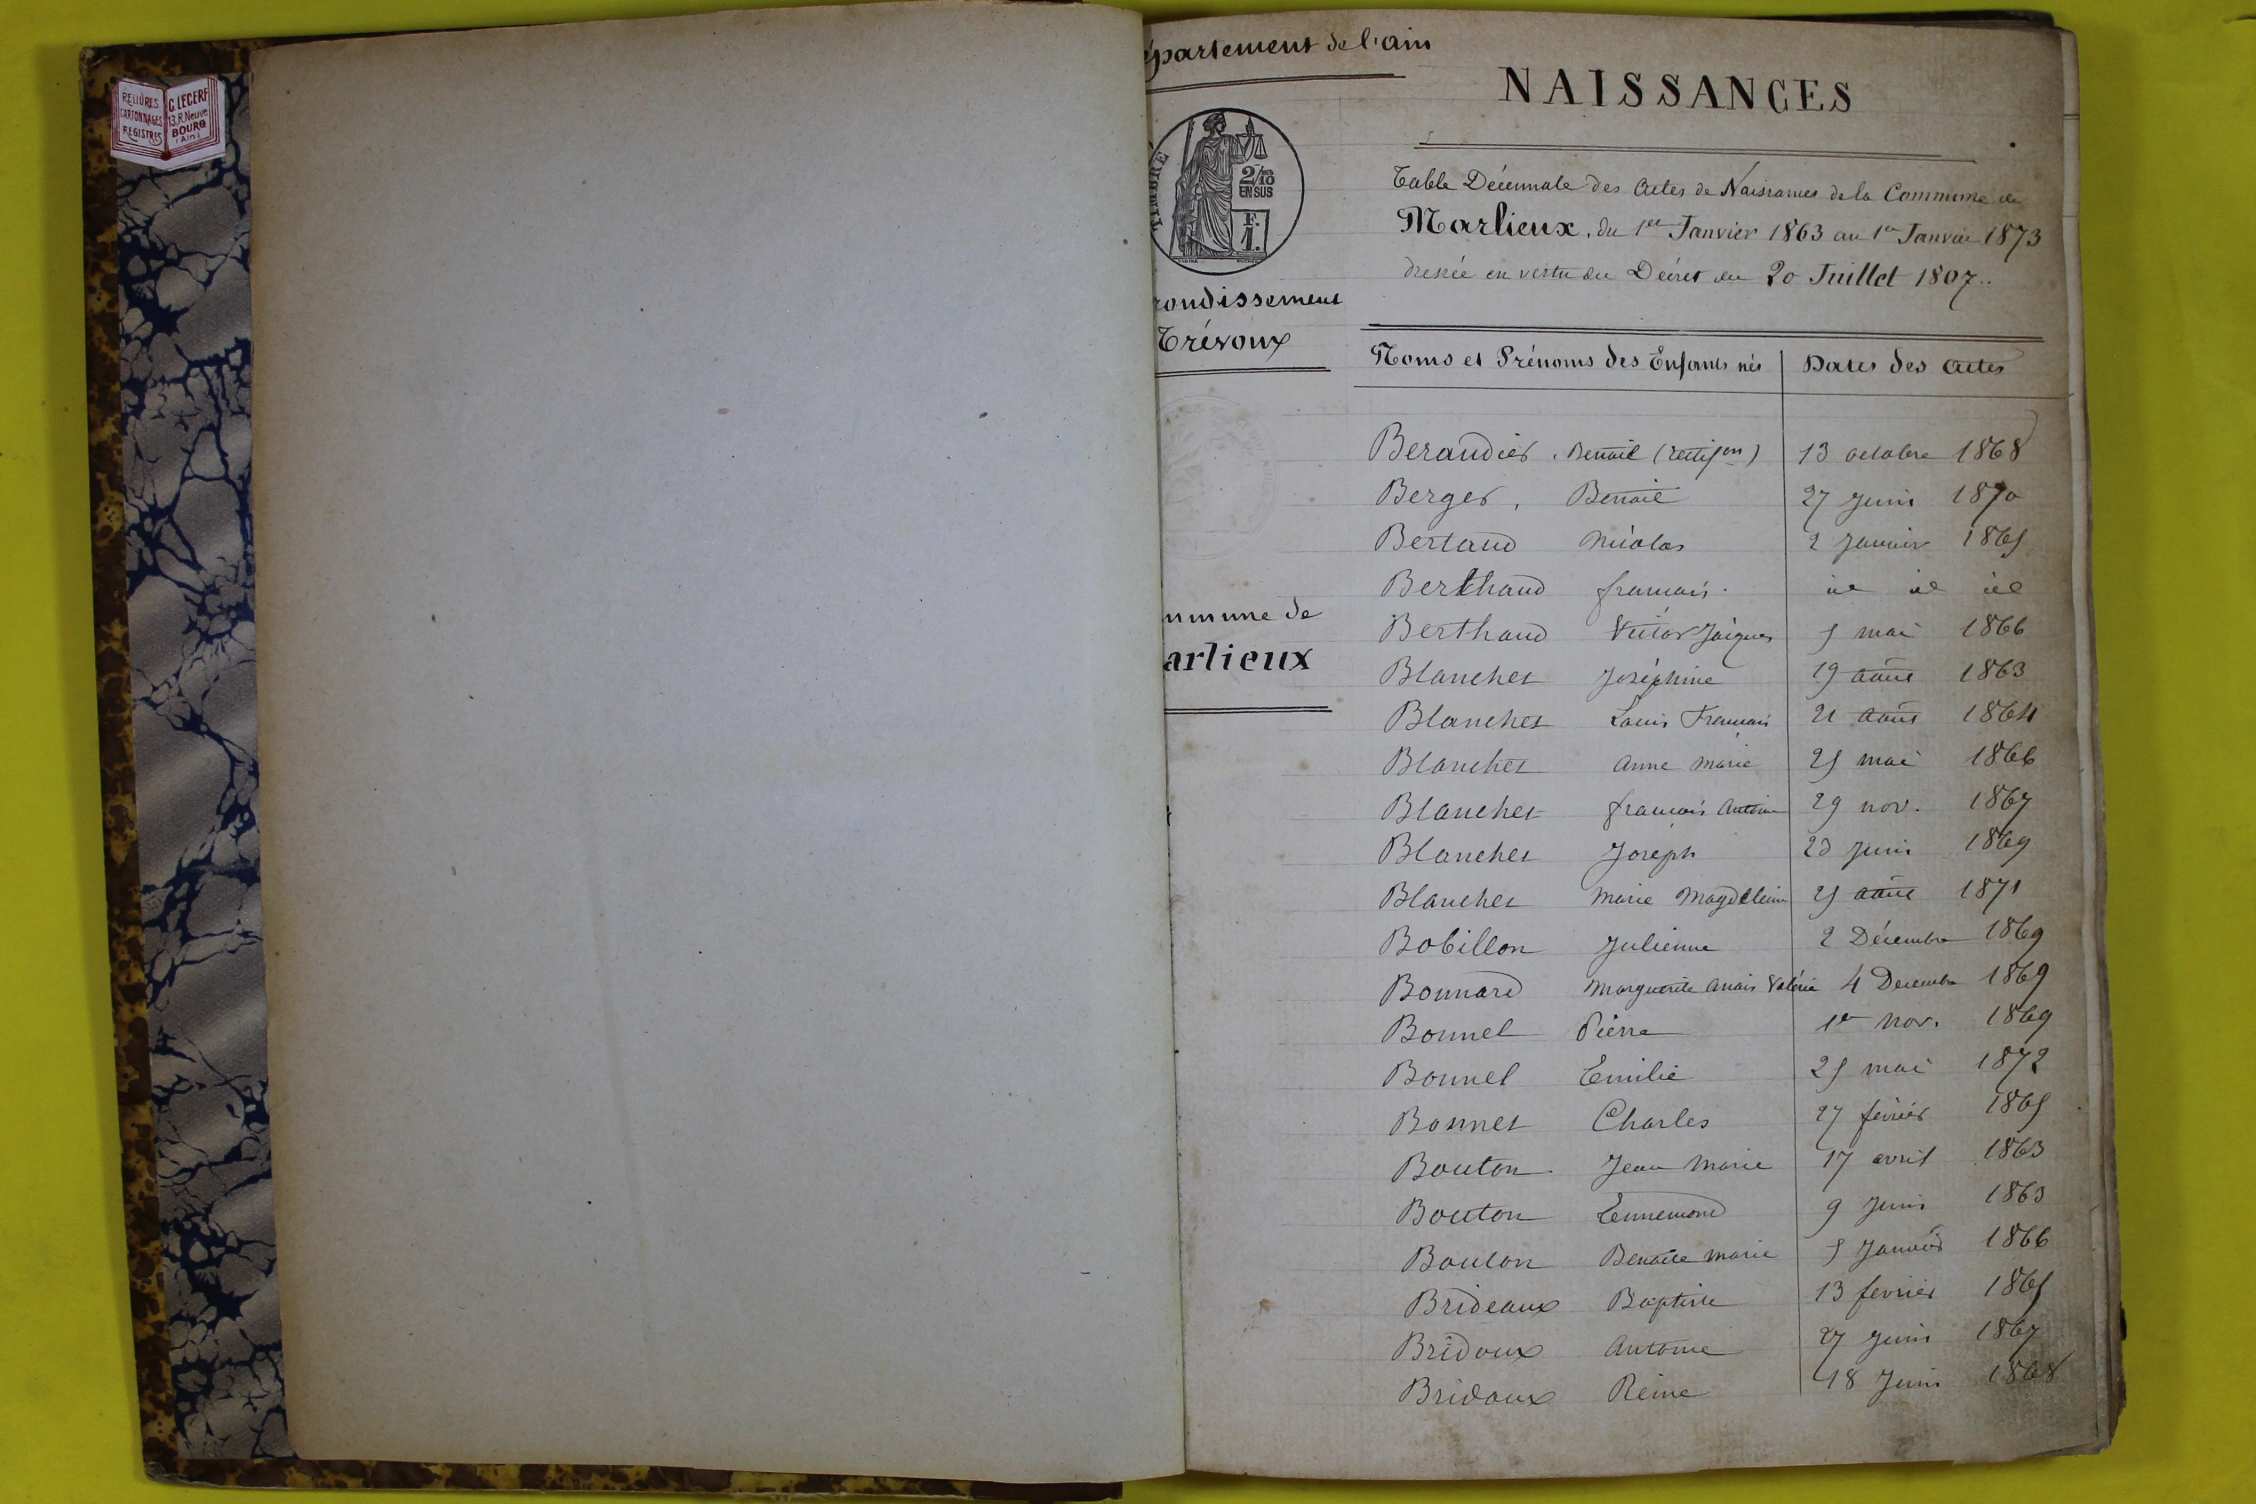 RELIURES
CARTONNAGES
REGISTRES
G. LECERF
13, R. Neuve
BOURG
(Ain)
épartement de l'ain
TIMBRE
2/10
EN SUS
F.
1.
rondissement
Trévoux
mmune de
arlieux
NAISSANCES
Table Décennale des Actes de Naissances de la Commune de
Marlieux, du 1er Janvier 1863 au 1er Janvier 1873
dressée en vertu du Décret du 20 Juillet 1807..
Noms et Prénoms des Enfants nés Dates des Actes
Beraudier. Benoit (rectifon) 13 octobre 1868
Berger, Benoit 27 juin 1870
Bertaud Nicolas 2 Janvier 1865
Berthaud françois. id id id
Berthaud Victor Jacques 5 mai 1866
Blanchet Joséphine 19 août 1863
Blanchet Louis François 21 août 1864
Blanchet anne marie 25 mai 1866
Blanchet françois Antoine 29 nov. 1867
Blanchet Joseph 23 juin 1869
Blanchet marie Magdeleine 25 août 1871
Bobillon Julienne 2 Décembre 1869
Bonnard Marguerite Anaïs Valérie 4 Decembre 1869
Bonnel Pierre 1er nov. 1869
Bonnel Emilie 25 mai 1872
Bonnet Charles 27 février 1865
Bouton. Jean Marie 17 avril 1863
Bouton Ennemond 9 Juin 1863
Bouton Benoite marie 5 Janvier 1866
Brideaux Baptiste 13 fevrier 1865
Bridoux Antoine 27 juin 1867
Bridoux Reine 18 Juin 1868